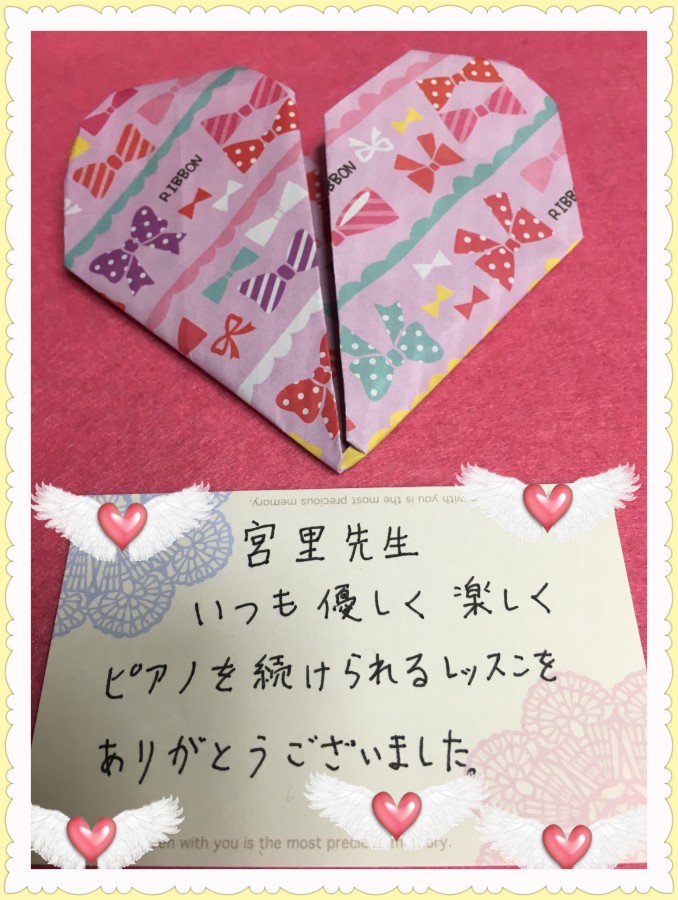 RIBBON
BBON
RIBB
with you is the most precious memory.
宮里先生
いつも優しく楽しく
ピアノを続けられるレッスンを
ありがとうございました。
with you is the most